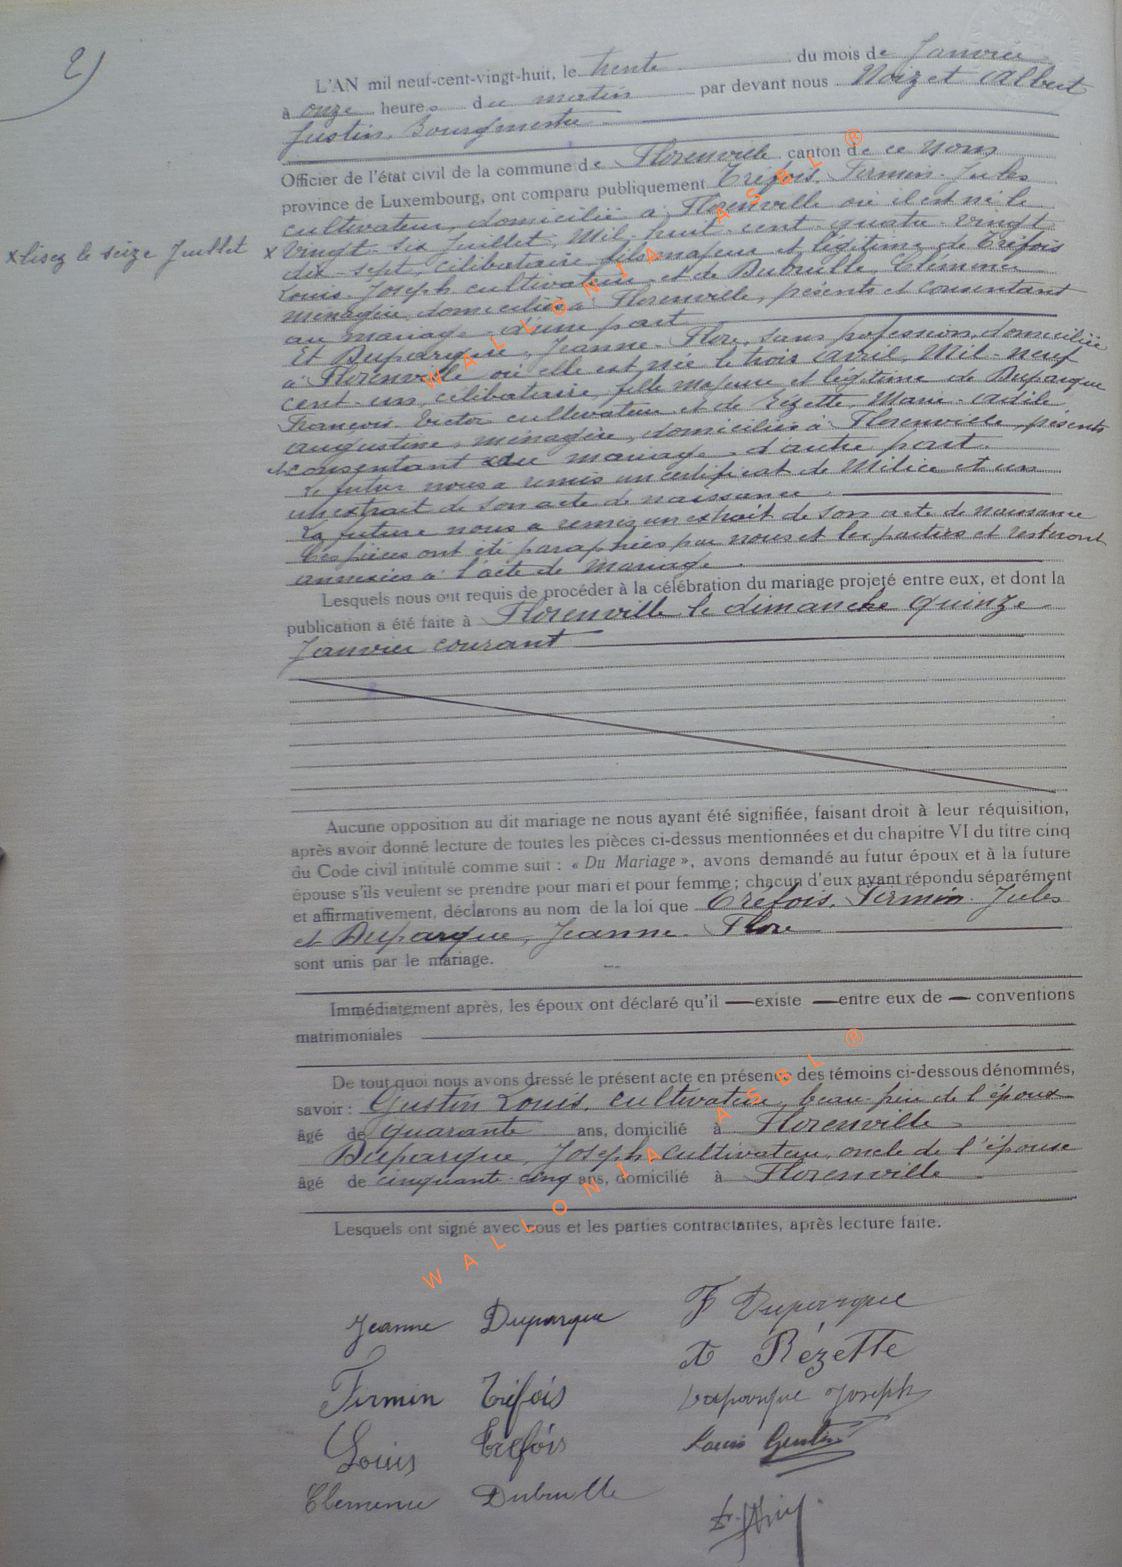 2)
L'AN mil neuf-cent-vingt-huit, le trente du mois de Janvier
à onze heures du matin par devant nous Nozet Albert
Justin, Bourgmestre
Officier de l'état civil de la commune de Florenville canton de ce nom
province de Luxembourg, ont comparu publiquement Tréfois, Firmin-Jules
cultivateur, domicilié à Florenville où il est né le
x lisez le seize Juillet x vingt-six Juillet, Mil-huit-cent-quatre-vingt
dix-sept, célibataire fils majeur et légitime de Tréfois
Louis-Joseph cultivateur et de Dubrulle, Clémence
ménagère, domiciliés à Florenville, présents et consentant
au mariage d'une part
Et Duparque, Jeanne-Flore, sans profession, domiciliée
à Florenville où elle est née le trois Avril, Mil-neuf
cent-un, célibataire, fille majeure et légitime de Duparque
François-Victor cultivateur et de Rézette, Marie-
Augustine, ménagère, domiciliés à Florenville, présents
et consentant au mariage, d'autre part.
Le futur nous a remis un certificat de Milice et un
extrait de son acte de naissance.
La future nous a remis un extrait de son acte de naissance
Ces pièces ont été paraphées par nous et les parties et resteront
annexées à l'acte de Mariage.
Lesquels nous ont requis de procéder à la célébration du mariage projeté entre eux, et dont la
publication a été faite à Florenville le dimanche quinze
Janvier courant
Aucune opposition au dit mariage ne nous ayant été signifiée, faisant droit à leur réquisition,
après avoir donné lecture de toutes les pièces ci-dessus mentionnées et du chapitre VI du titre cinq
du Code civil intitulé comme suit : « Du Mariage », avons demandé au futur époux et à la future
épouse s'ils veulent se prendre pour mari et pour femme ; chacun d'eux ayant répondu séparément
et affirmativement, déclarons au nom de la loi que Tréfois, Firmin-Jules
et Duparque, Jeanne-Flore
sont unis par le mariage.
Immédiatement après, les époux ont déclaré qu'il — existe — entre eux de — conventions
matrimoniales
De tout quoi nous avons dressé le présent acte en présence des témoins ci-dessous dénommés,
savoir : Gustin Louis, cultivateur, beau-frère de l'époux
âgé de quarante ans, domicilié à Florenville
Duparque, Joseph cultivateur, oncle de l'épouse
âgé de cinquante-cinq ans, domicilié à Florenville
Lesquels ont signé avec nous et les parties contractantes, après lecture faite.
Jeanne Duparque F Duparque
A Rézette
Firmin Tréfois Duparque Joseph
Louis Tréfois Louis Gustin
Clemence Dubrulle
WALLONIA ASBL ®
WALLONIA ASBL ®